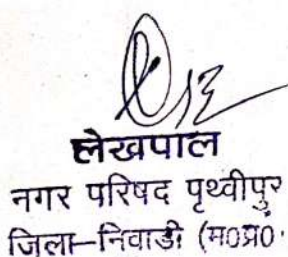 लेखपाल
नगर परिषद पृथ्वीपुर
जिला-निवाडी (म0प्र0